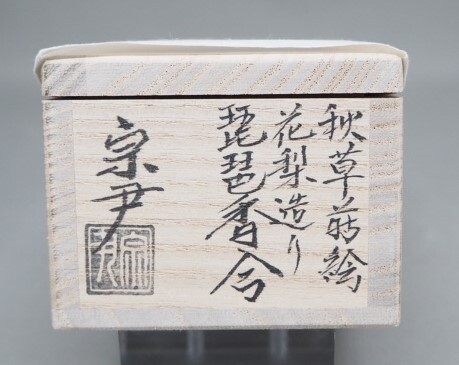 秋草蒔繪
花梨造り
琵琶香合
宗尹